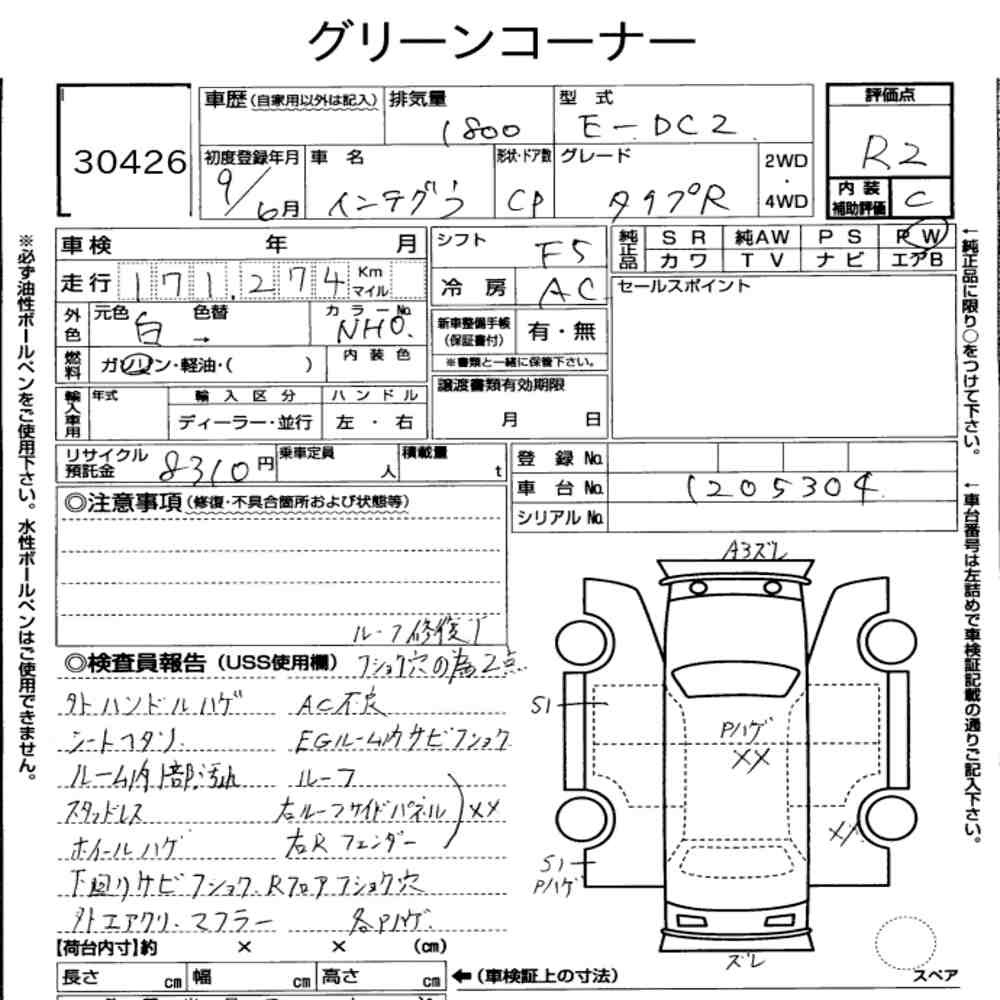 グリーンコーナー
30426
車歴(自家用以外は記入)
排気量 1800
型式 E-DC2
評価点 R2
初度登録年月 9/6月
車名 インテグラ
形状・ドア数 CP
グレード タイプR
2WD・4WD
内装補助評価 C
車検 年 月
走行 171,274 Km マイル
外色 元色 白 色替 → カラーNo. NH0.
燃料 ガソリン・軽油・( )
内装色
輸入車用 年式 輸入区分 ディーラー・並行 ハンドル 左・右
シフト F5
冷房 AC
新車整備手帳(保証書付) 有・無
※書類と一緒に保管下さい。
譲渡書類有効期限 月 日
純正品 SR 純AW PS PW
カワ TV ナビ エアB
セールスポイント
リサイクル預託金 8310円
乗車定員 人
積載量 t
登録No.
車台No. 1205304
シリアルNo.
◎注意事項(修復・不具合箇所および状態等)
ルーフ修復丁
◎検査員報告(USS使用欄)
フショク穴の為2点
外ハンドルハゲ AC不良
シートヘタリ. EGルーム内サビフショク
ルーム内部汚れ ルーフ
スタッドレス 右ルーフサイドパネル XX
ホイールハゲ 右Rフェンダー
下回りサビフショク. Rフロアフショク穴
外エアクリ. マフラー 各Pハゲ.
【荷台内寸】約 × × (cm)
長さ cm 幅 cm 高さ cm
←(車検証上の寸法)
A3ズレ
S1
Pハゲ
XX
XX
S1
Pハゲ
ズレ
スペア
※必ず油性ボールペンをご使用下さい。水性ボールペンはご使用できません。
←純正品に限り○をつけて下さい。
←車台番号は左詰めで車検証記載の通りご記入下さい。